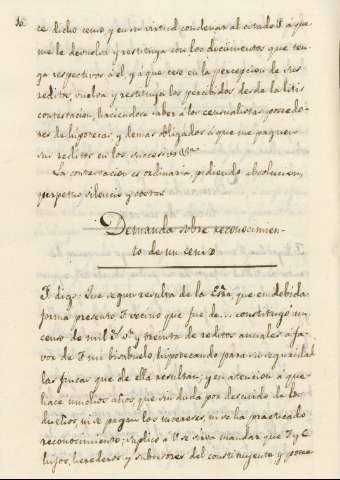 ce dicho censo y en su virtud condenar al citado F. á que
me le devuelva y restituya con los documentos que ten-
ga respectivos á el, y á que cese en la percepcion de sus
reditos, vuelva y restituya los percibidos desde la litis
contestacion, haciendose saber á los censualistas, poseedo-
res de hipotecas, y demas obligados á que me paguen
sus reditos en los sucesivos &a.
La contestacion es ordinaria, pidiendo absolucion,
perpetuo silencio y costas.
Demanda sobre reconocimien-
to de un censo
F. digo: Que segun resulta de la Esra. que en debida
forma presento F. vecino que fue de... constituyó un
censo de mil Ds. y treinta de reditos anuales á fa-
vor de F. mi bisabuelo, hipotecando para su seguridad
las fincas que de ella resultan; y en atencion á que
hace muchos años que sin duda por descuido de los
dueños, ni se pagan los intereses, ni se ha practicado
reconocimiento; suplico á V. se sirva mandar que F. y C
hijos, herederos y subcesores del constituyente y posee